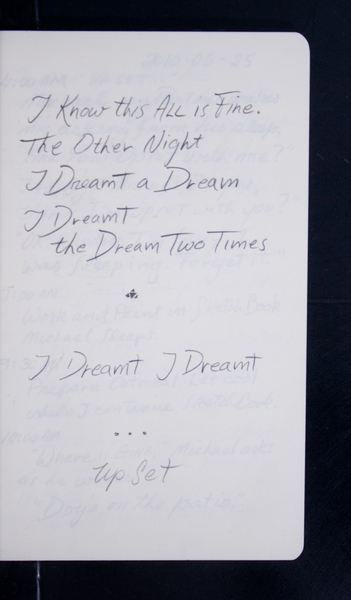 I Know this ALL is Fine.
The Other Night
I Dreamt a Dream
I Dreamt
the Dream Two Times
I Dreamt I Dreamt
...
Up Set